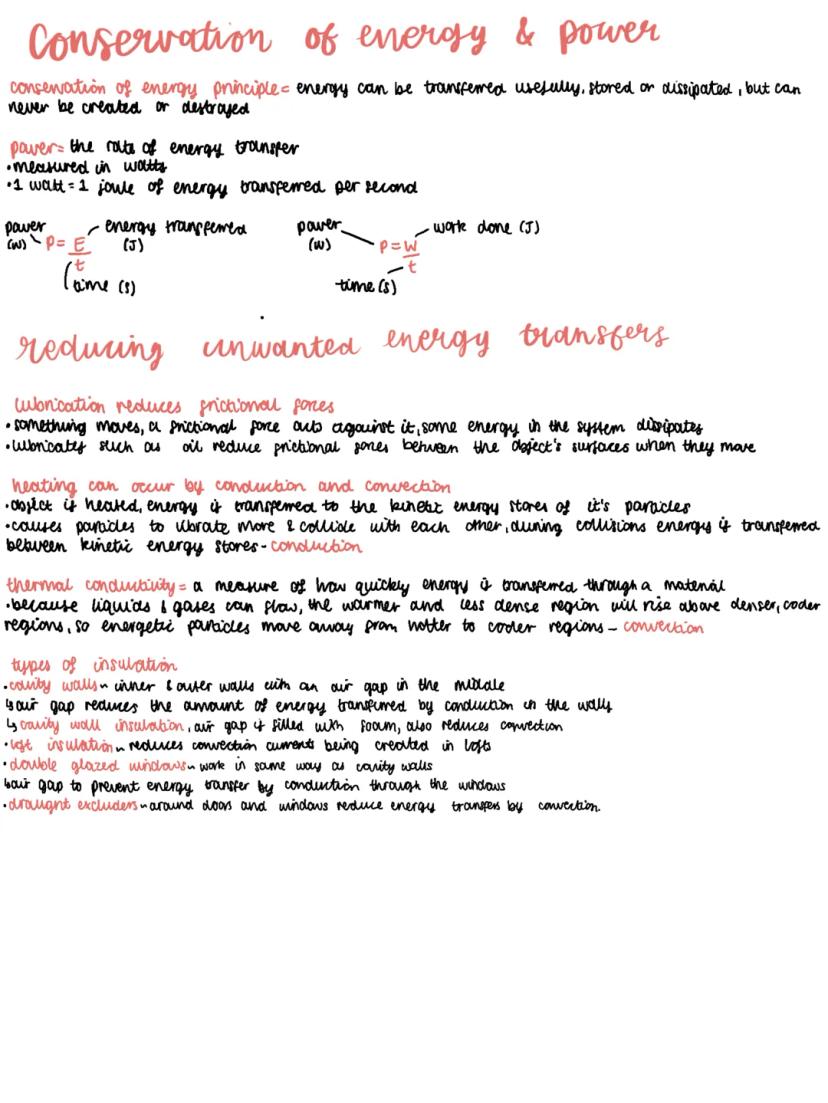 Conservation of energy & power
conservation of energy principle = energy can be transferred usefully, stored or dissipated, but can
never be created or destroyed
power = the rate of energy transfer
•measured in watts
•1 watt = 1 joule of energy transferred per second
power energy transferred power work done (J)
(W) P = E (J) (W) P = W
t t
time (s) time (s)
reducing unwanted energy transfers
lubrication reduces frictional forces
•something moves, a frictional force acts against it, some energy in the system dissipates
•lubricates such as oil reduce frictional forces between the object's surfaces when they move
heating can occur by conduction and convection
•object is heated, energy is transferred to the kinetic energy stores of it's particles
•causes particles to vibrate more & collide with each other, during collisions energy is transferred
between kinetic energy stores - conduction
thermal conductivity = a measure of how quickly energy is transferred through a material
•because liquids & gases can flow, the warmer and less dense region will rise above denser, cooler
regions, so energetic particles move away from hotter to cooler regions - convection
types of insulation
•cavity walls ~ inner & outer walls with an air gap in the middle
↳air gap reduces the amount of energy transferred by conduction in the walls
↳cavity wall insulation, air gap is filled with foam, also reduces convection
•loft insulation ~ reduces convection currents being created in lofts
•double glazed windows ~ work in same way as cavity walls
↳air gap to prevent energy transfer by conduction through the windows
•draught excluders ~ around doors and windows reduce energy transfers by convection.